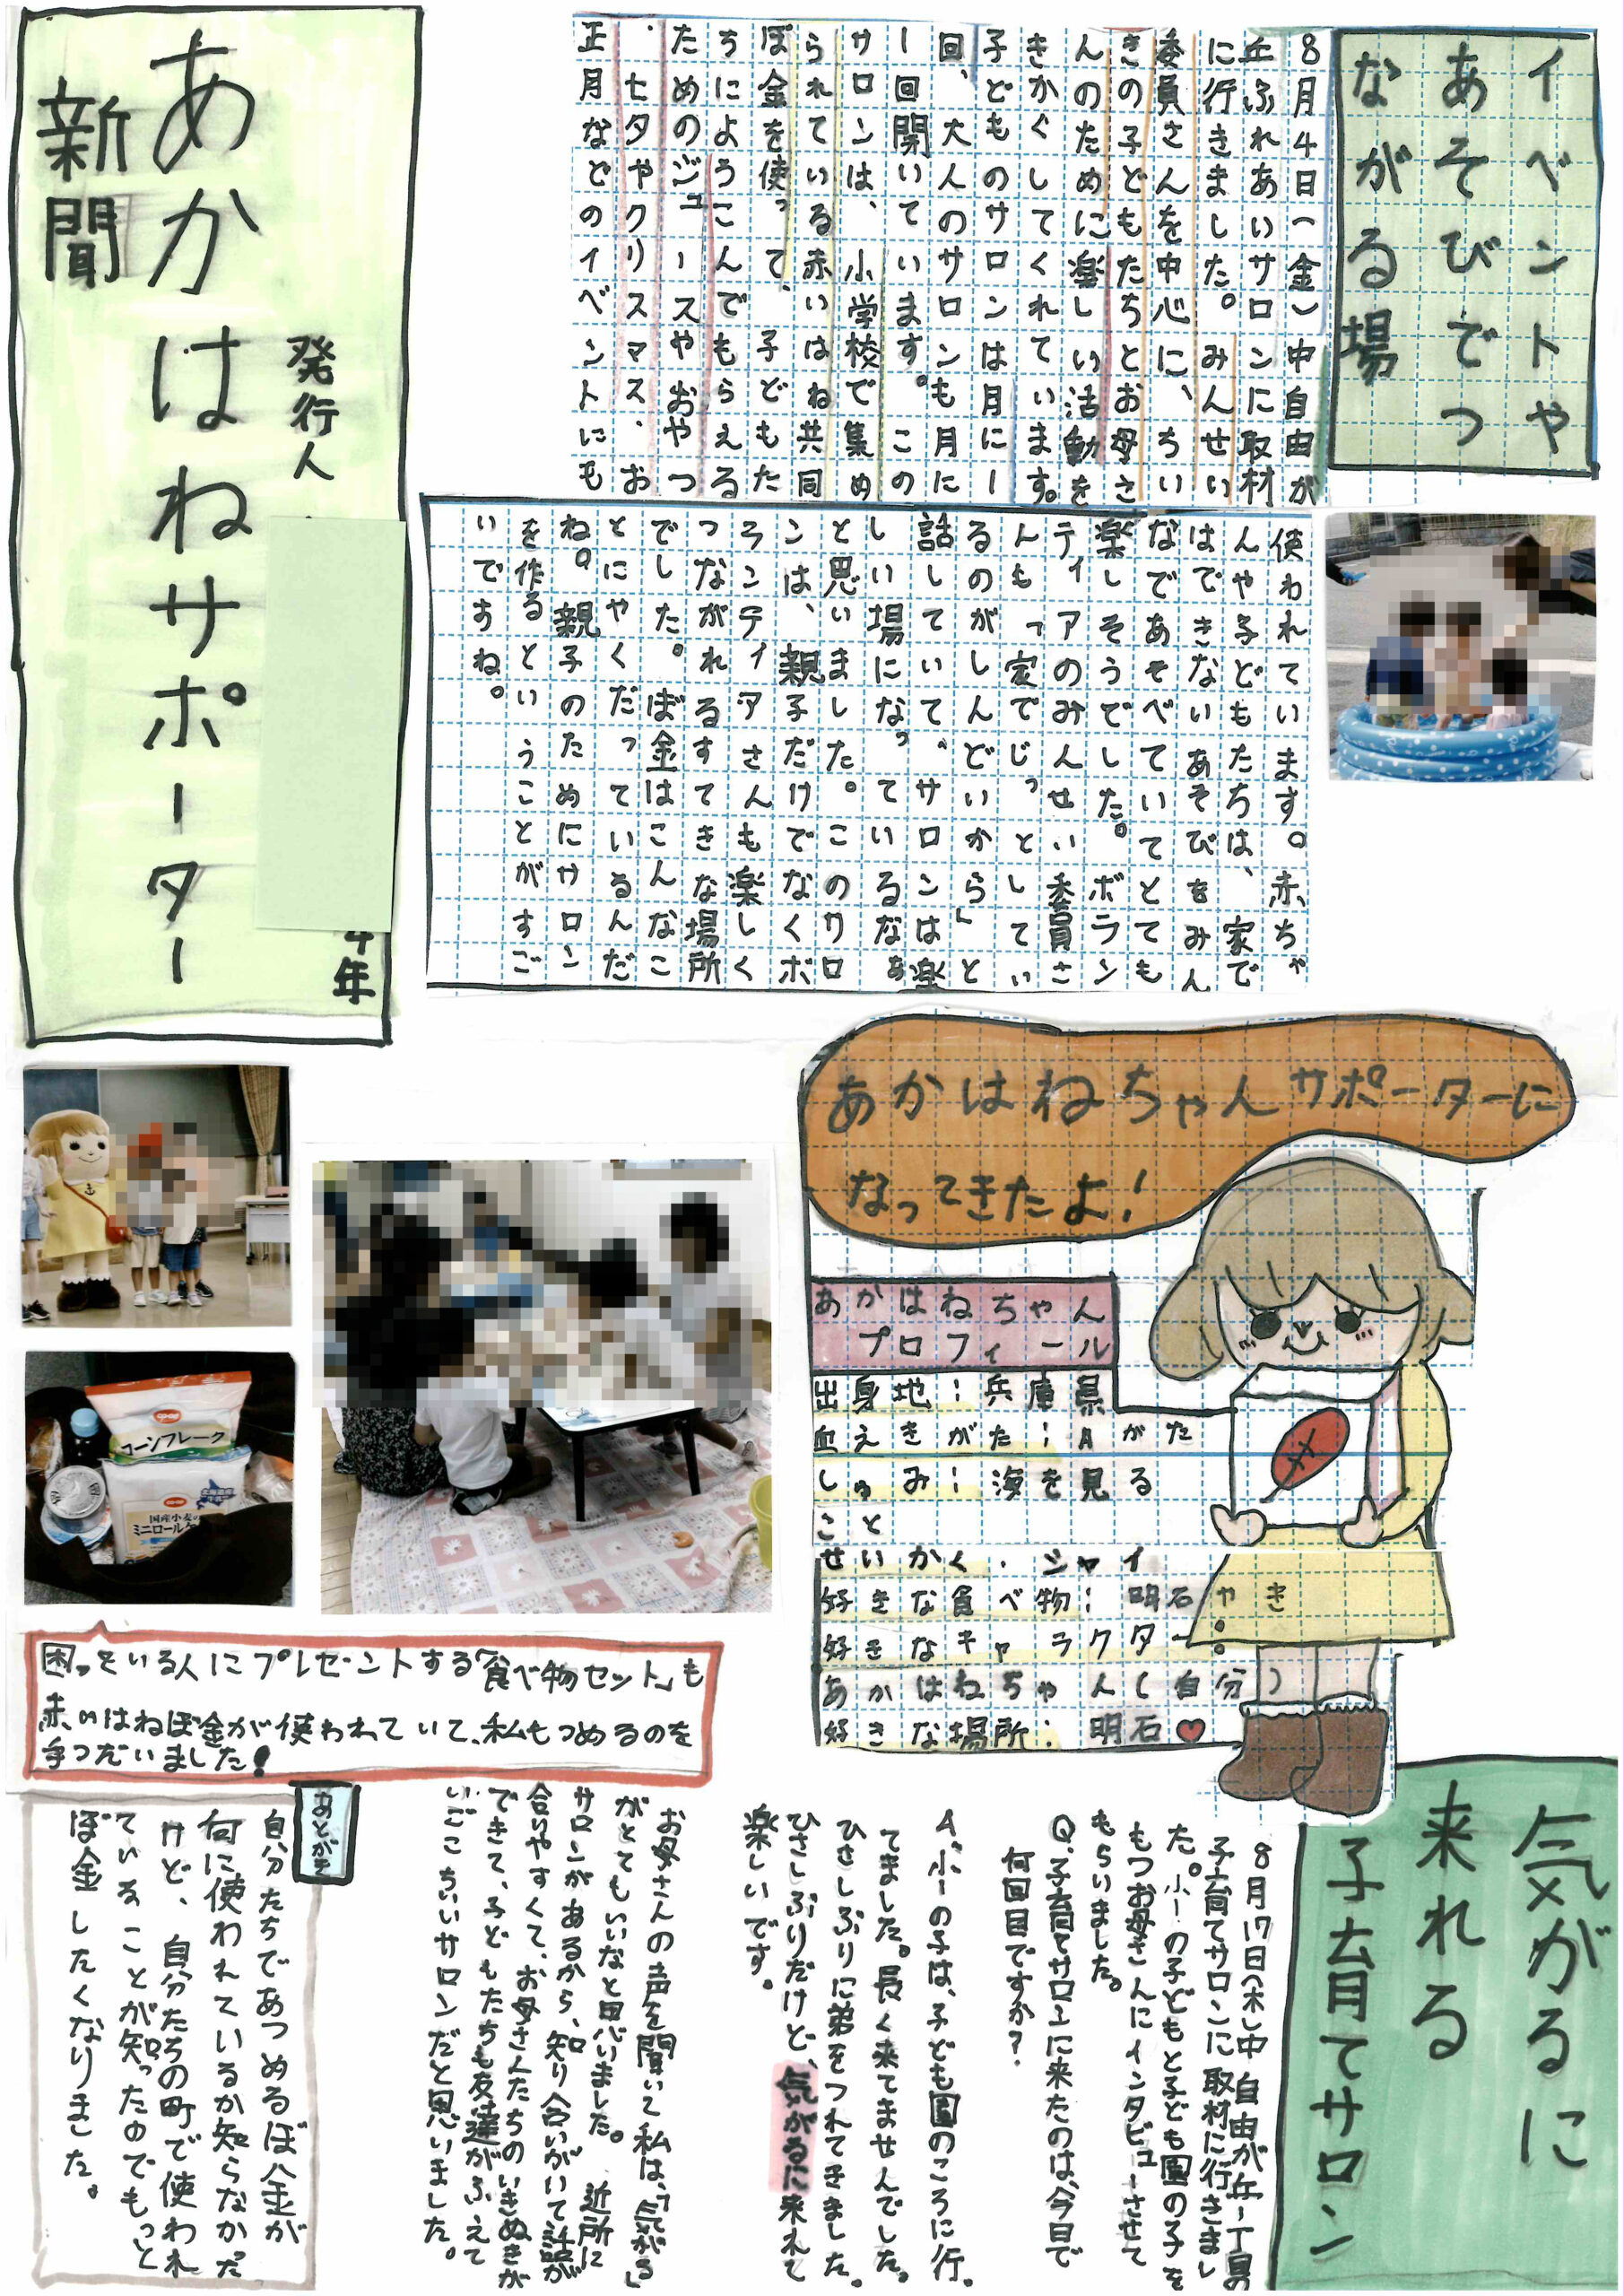 あかはねサポーター
新聞
発行人
4年
イベントや
あそびでつ
ながる場
8月4日(金)中自由が
丘ふれあいサロンに取材
に行きました。みんせい
委員さんを中心に、ちい
きの子どもたちとお母さ
んのために楽しい活動を
きかくしてくれています。
子どものサロンは月に1
回、大人のサロンも月に
1回開いています。この
サロンは、小学校で集め
られている赤いはね共同
ぼ金を使って、子どもた
ちにようこんでもらえる
ためのジュースやおやつ
、七夕やクリスマス、お
正月などのイベントにも
使われています。赤ちゃ
んや子どもたちは、家で
はできないあそびをみん
なであそべていてとても
楽しそうでした。ボラン
ティアのみんせい委員さ
んも「家でじっとしてい
るのがしんどいから」と
話していて、サロンは楽
しい場になっているなあ
と思いました。このサロ
ンは、親子だけでなくボ
ランティアさんも楽しく
つながれるすてきな場所
でした。ぼ金はこんなこ
とにやくだっているんだ
ね。親子のためにサロン
を作るということがすご
いですね。
あかはねちゃんサポーターに
なってきたよ!
あかはねちゃん
プロフィール
出身地:兵庫県
血えきがた:Aがた
しゅみ:海を見る
こと
せいかく:シャイ
好きな食べ物:明石やき
好きなキャラクター:
あかはねちゃん(自分)
好きな場所:明石
コープ
コーンフレーク
国産小麦の
困っている人にプレゼントする「食べ物セット」も
赤いはねぼ金が使われていて、私もつめるのを
手つだいました!
気がるに
来れる
子育てサロン
8月17日(木)中自由が丘1丁目の
子育てサロンに取材に行きまし
た。小1の子どもと子ども園の子を
もつお母さんにインタビューさせて
もらいました。
Q、子育てサロンに来たのは、今日で
何回目ですか?
A、小1の子は、子ども園のころに行っ
てました。長く来てませんでした。
ひさしぶりに弟をつれてきました。
ひさしぶりだけど、気がるに来れて
楽しいです。
お母さんの声を聞いて私は、「気がる」
がとてもいいなと思いました。近所に
サロンがあるから、知り合いがいて話が
合いやすくて、お母さんたちのいきぬきが
できて、子どもたちも友達がふえて
いごこちいいサロンだと思いました。
あとがき
自分たちであつめるぼ金が
何に使われているか知らなかった
けど、自分たちの町で使われ
ていることが知ったのでもっと
ぼ金したくなりました。